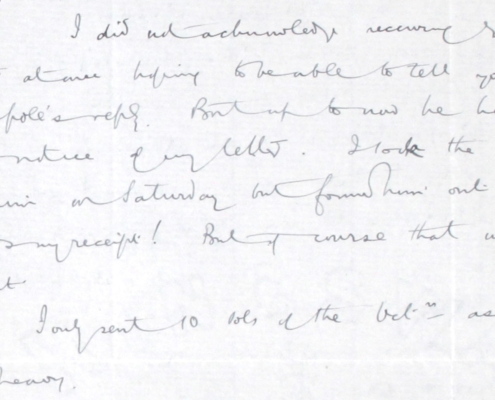 I did not acknowledge receiving
at once hoping to be able to tell
pole's reply. But up to now he
notice of my letter. I took the
on Saturday but found him out
my receipt! But of course that
I only sent 10 vols of the Vict:ⁿ as
heavy.